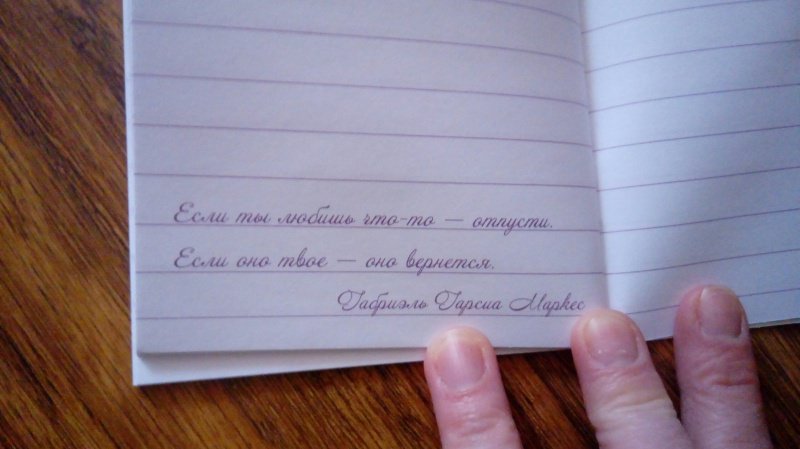 Если ты любишь что-то — отпусти.
Если оно твое — оно вернется.
Габриэль Гарсиа Маркес